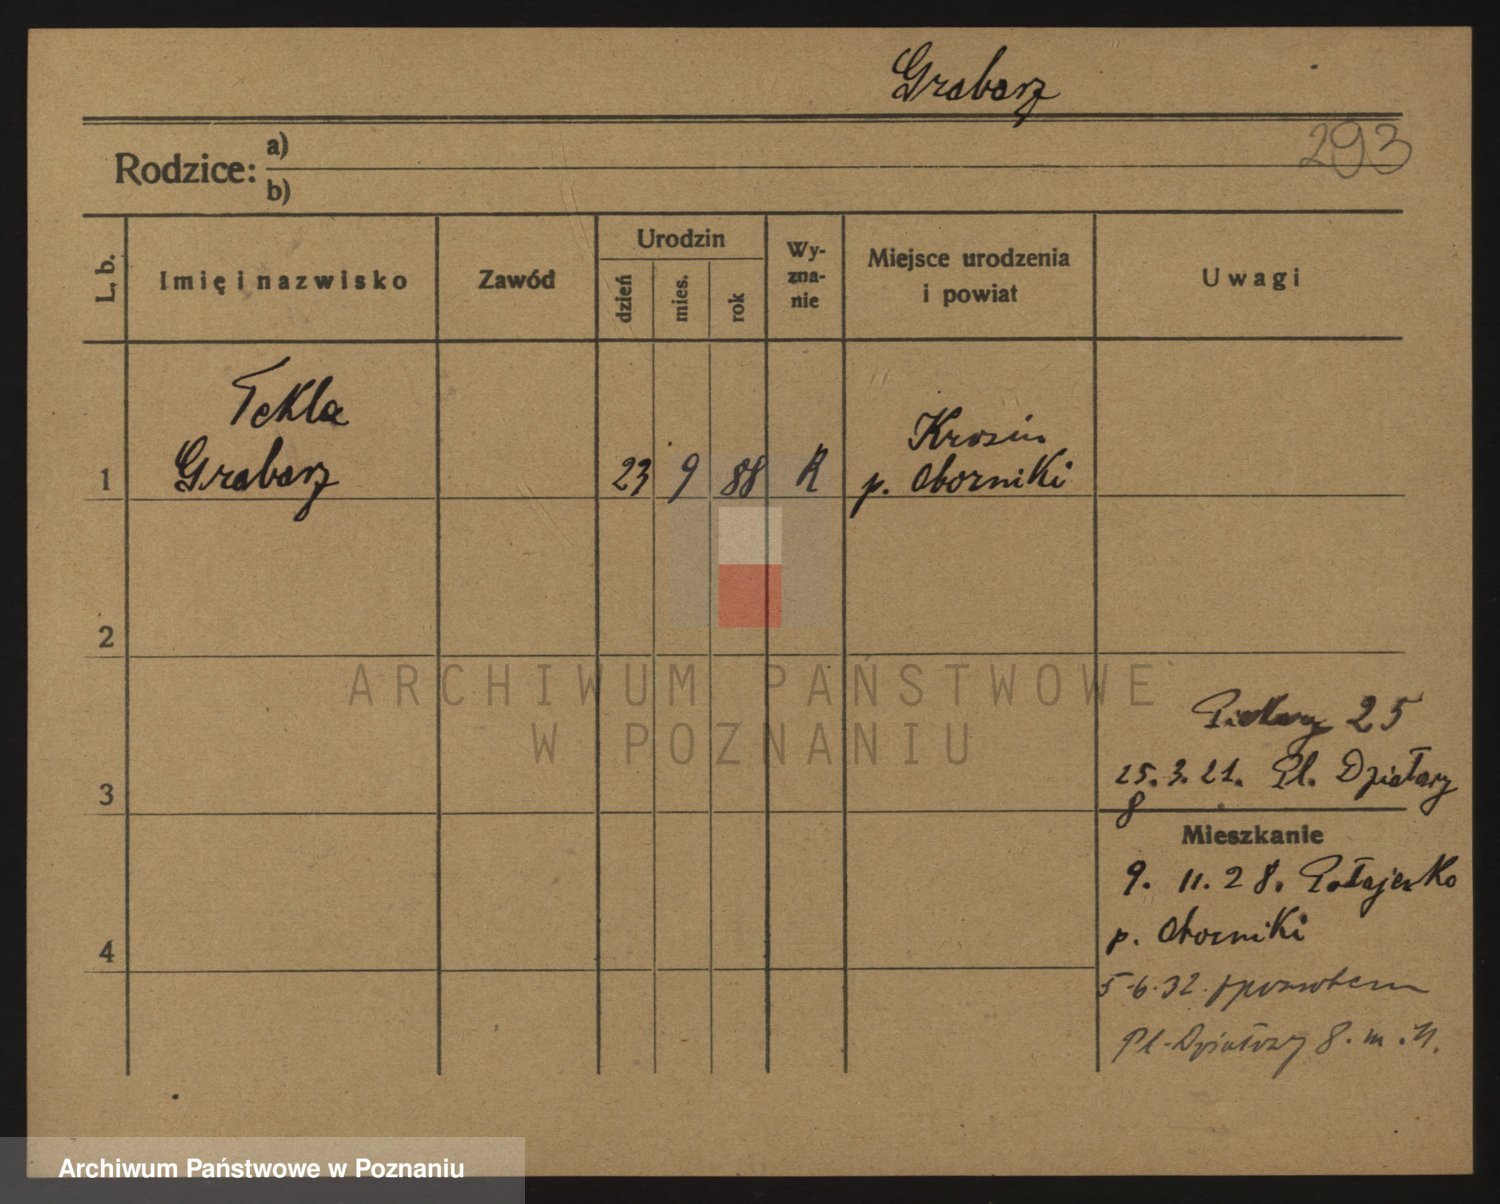 Grabarz
293
Rodzice: a)
b)
L. b. Imię i nazwisko Zawód Urodzin dzień mies. rok Wy-zna-nie Miejsce urodzenia i powiat Uwagi
Tekla
Grabarz
1 23 9 88 R Krosin
p. Oborniki
2
ARCHIWUM PAŃSTWOWE
W POZNANIU
25
25.3.21. Pl. Działowy
3
8
Mieszkanie
9. 11. 28. Połajewko
p. Oborniki
4
5-6-32. z powrotem
Pl-Działowy 8. m.
Archiwum Państwowe w Poznaniu